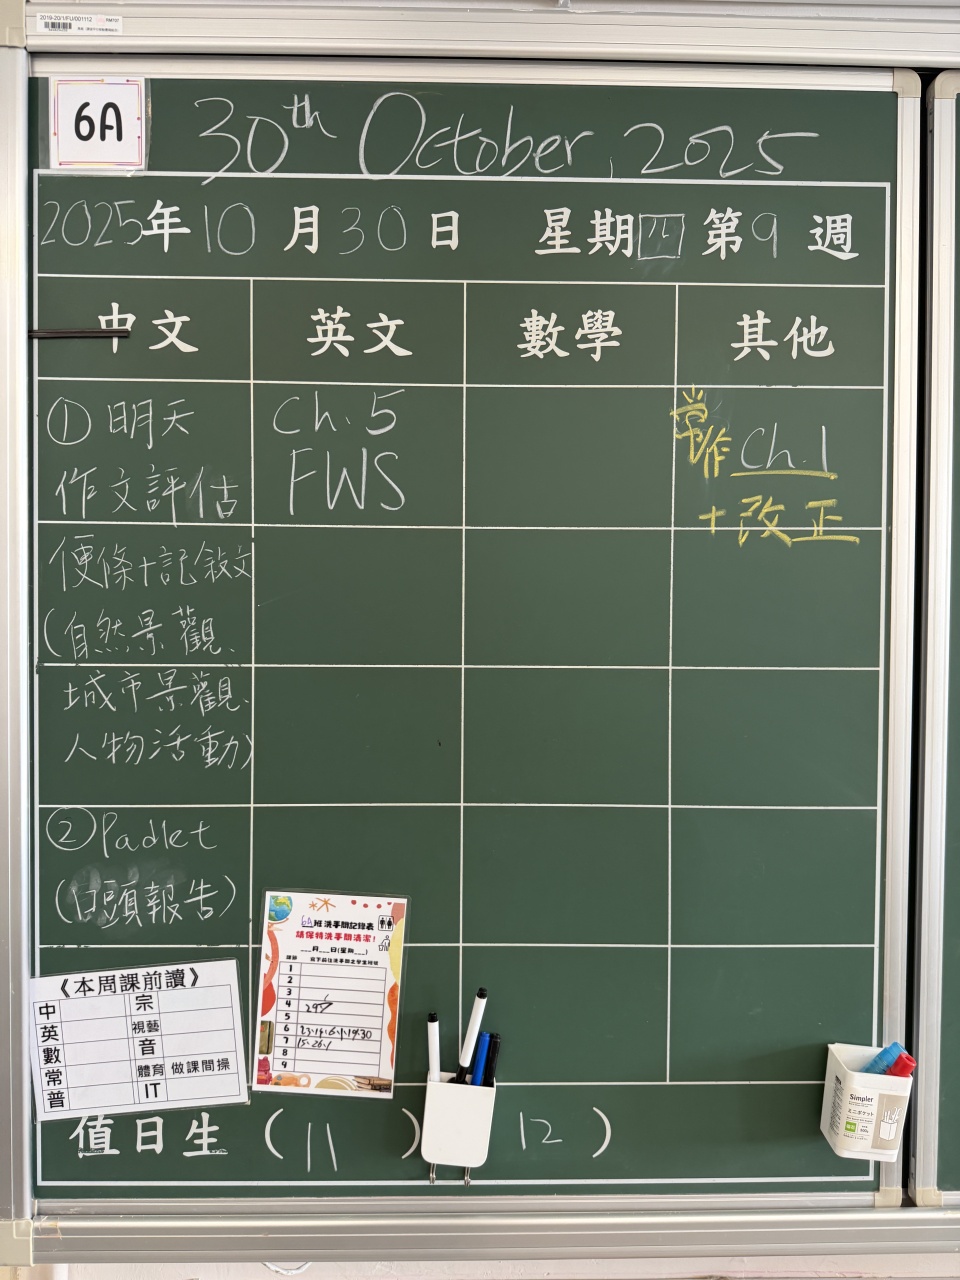 2019-20/1/FU/001112
RM707
6A
30th October, 2025
2025年10月30日 星期四 第9週
中文 英文 數學 其他
①明天
作文評估
便條+記敘文
(自然景觀、
城市景觀、
人物活動)
②Padlet
(口頭報告)
Ch. 5
FWS
常作 Ch. 1
+改正
《本周課前讀》
中 宗
英 視藝
數 音
常 體育 做課間操
普 IT
6A班洗手間記錄表
請保持洗手間清潔!
___月___日(星期___)
1
2
3
4 29
5
6 23.14.6.1.19.30
7 15.26.1
8
9
值日生 ( 11 ) 12 )
Simpler
ミニポケット